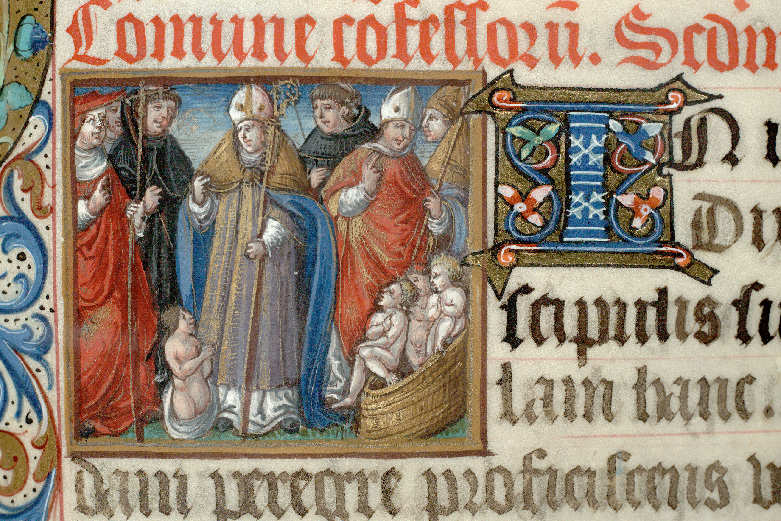 Comune cōfessorū. Scdm
IN i
Di
scipulis su
lam hanc.
dam peregre proficiscens v